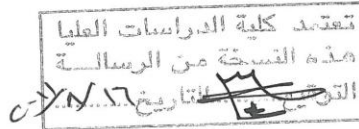 تعتمد كلية الدراسات العليا
هذه النسخة من الرسالــة
التوقيع ....... التاريخ .......